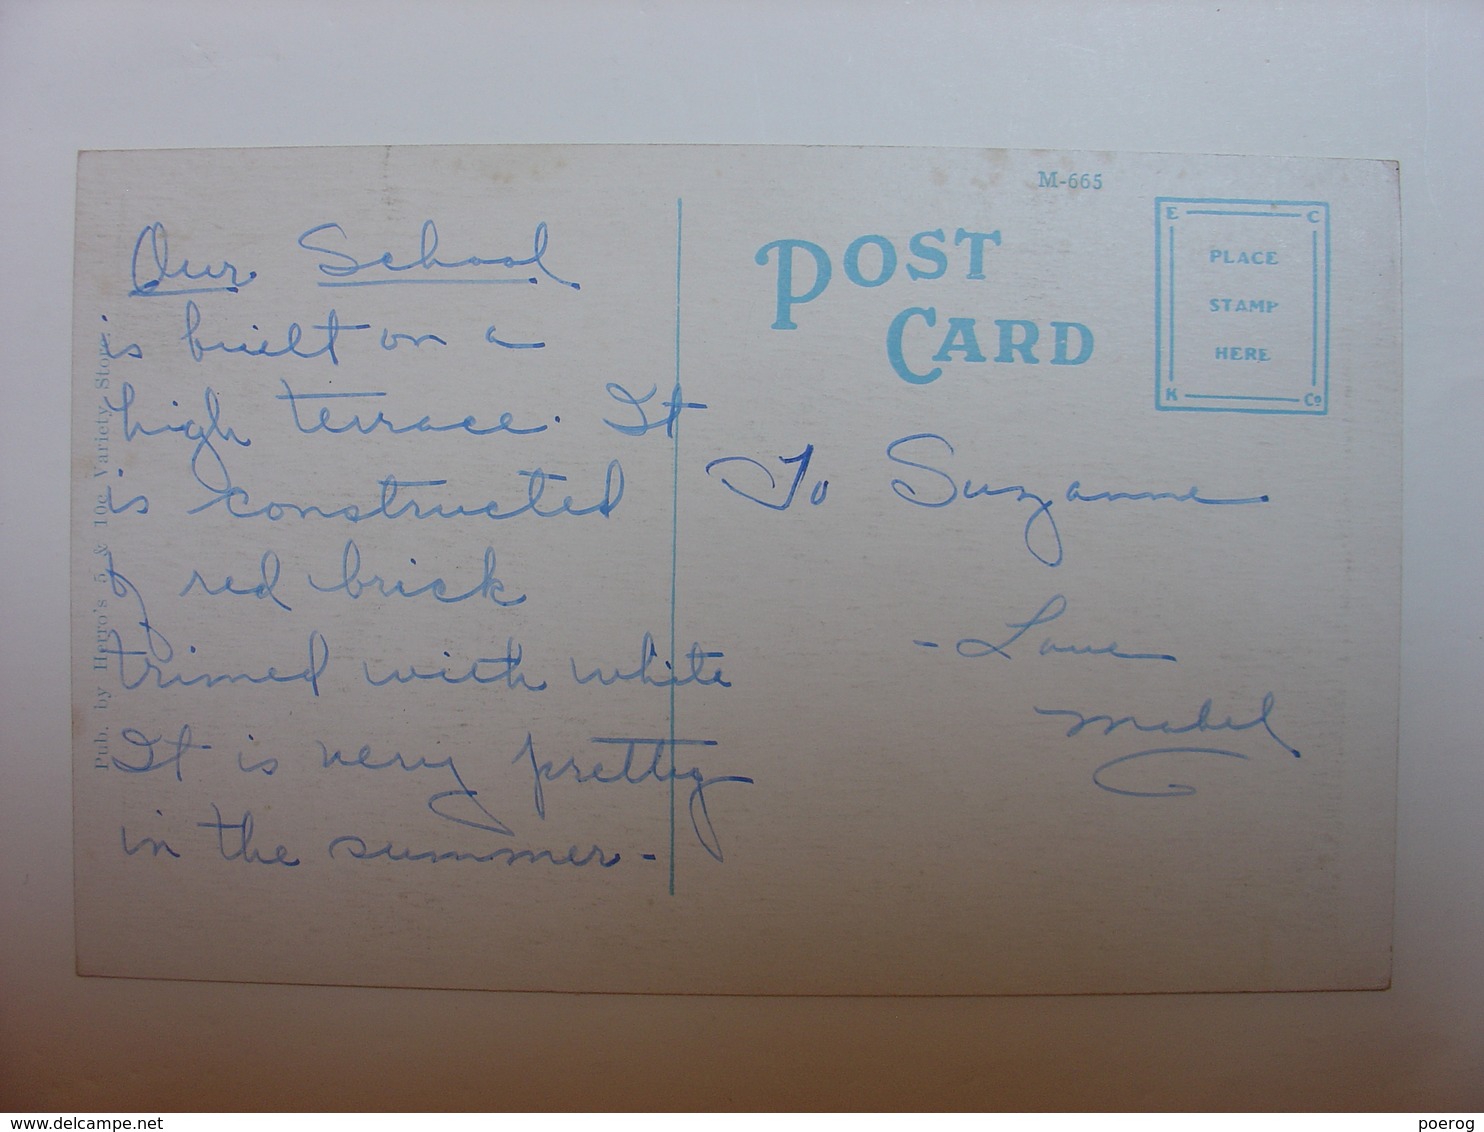 Our School
is built on a
high terrace. It
is constructed
of red brick
trimed with white
It is very pretty
in the summer -
Pub. by Herro's 5 & 10c Variety Store.
M-665
POST
CARD
E C
PLACE
STAMP
HERE
K Co
To Suzanne.
- Love
Mabel
delcampe.net
poerog